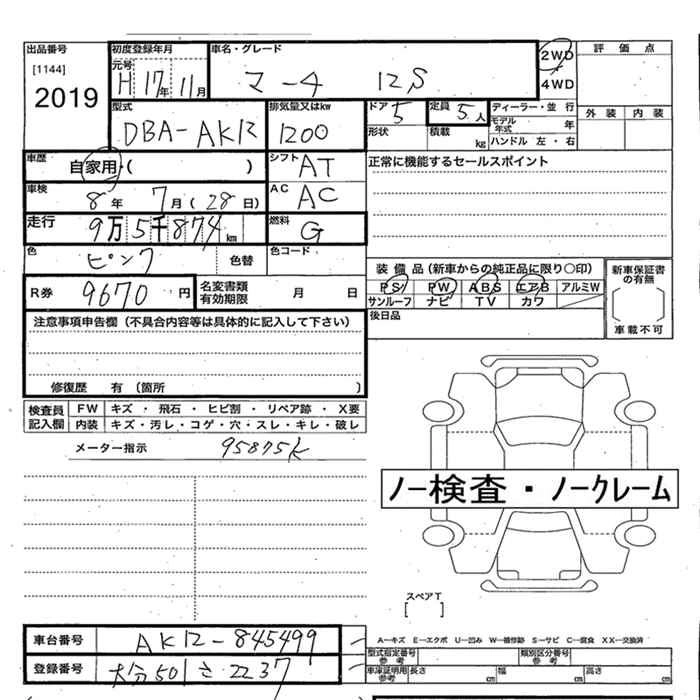 出品番号 初度登録年月 車名・グレード 2WD 評価点
[1144] 元号 H 17年 11月 マーチ 12S 4WD
2019
型式 排気量又はkw ドア 5 定員 5人 ディーラー・並行 外装 内装
DBA-AK12 1200 形状 積載 kg モデル年式 年
ハンドル 左・右
車歴 自家用・( ) シフト AT 正常に機能するセールスポイント
車検 8年 7月 (28日) AC AC
走行 9万5千874km 燃料 G
色 ピンク 色替 色コード
装備品(新車からの純正品に限り○印) 新車保証書の有無
R券 9670円 名変書類有効期限 月 日 PS PW ABS エアB アルミW
サンルーフ ナビ TV カワ
注意事項申告欄(不具合内容等は具体的に記入して下さい) 後日品 車載不可
修復歴 有(箇所 )
検査員記入欄 FW キズ・飛石・ヒビ割・リペア跡・X要
内装 キズ・汚レ・コゲ・穴・スレ・キレ・破レ
メーター指示 95875K
ノー検査・ノークレーム
スペアT
[ ]
車台番号 AK12-845499 A―キズ E―エクボ U―凹み W―補修跡 S―サビ C―腐食 XX―交換済
型式指定番号 参考 類別区分番号 参考
登録番号 大分501さ2237 車庫証明用 参考 長さ cm 幅 cm 高さ cm